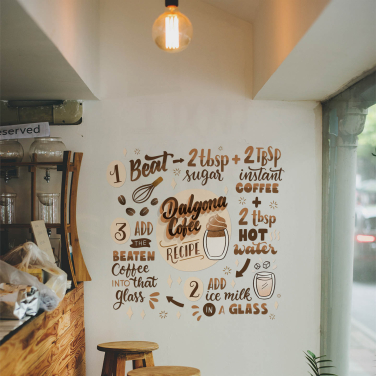 Reserved
1 Beat → 2 tbsp sugar + 2 TBSP instant COFFEE
+
2 tbsp HOT water
Dalgona
Cofee
RECIPE
2 ADD
ice milk
IN A GLASS
3 ADD
THE
BEATEN
Coffee
INTO that
glass